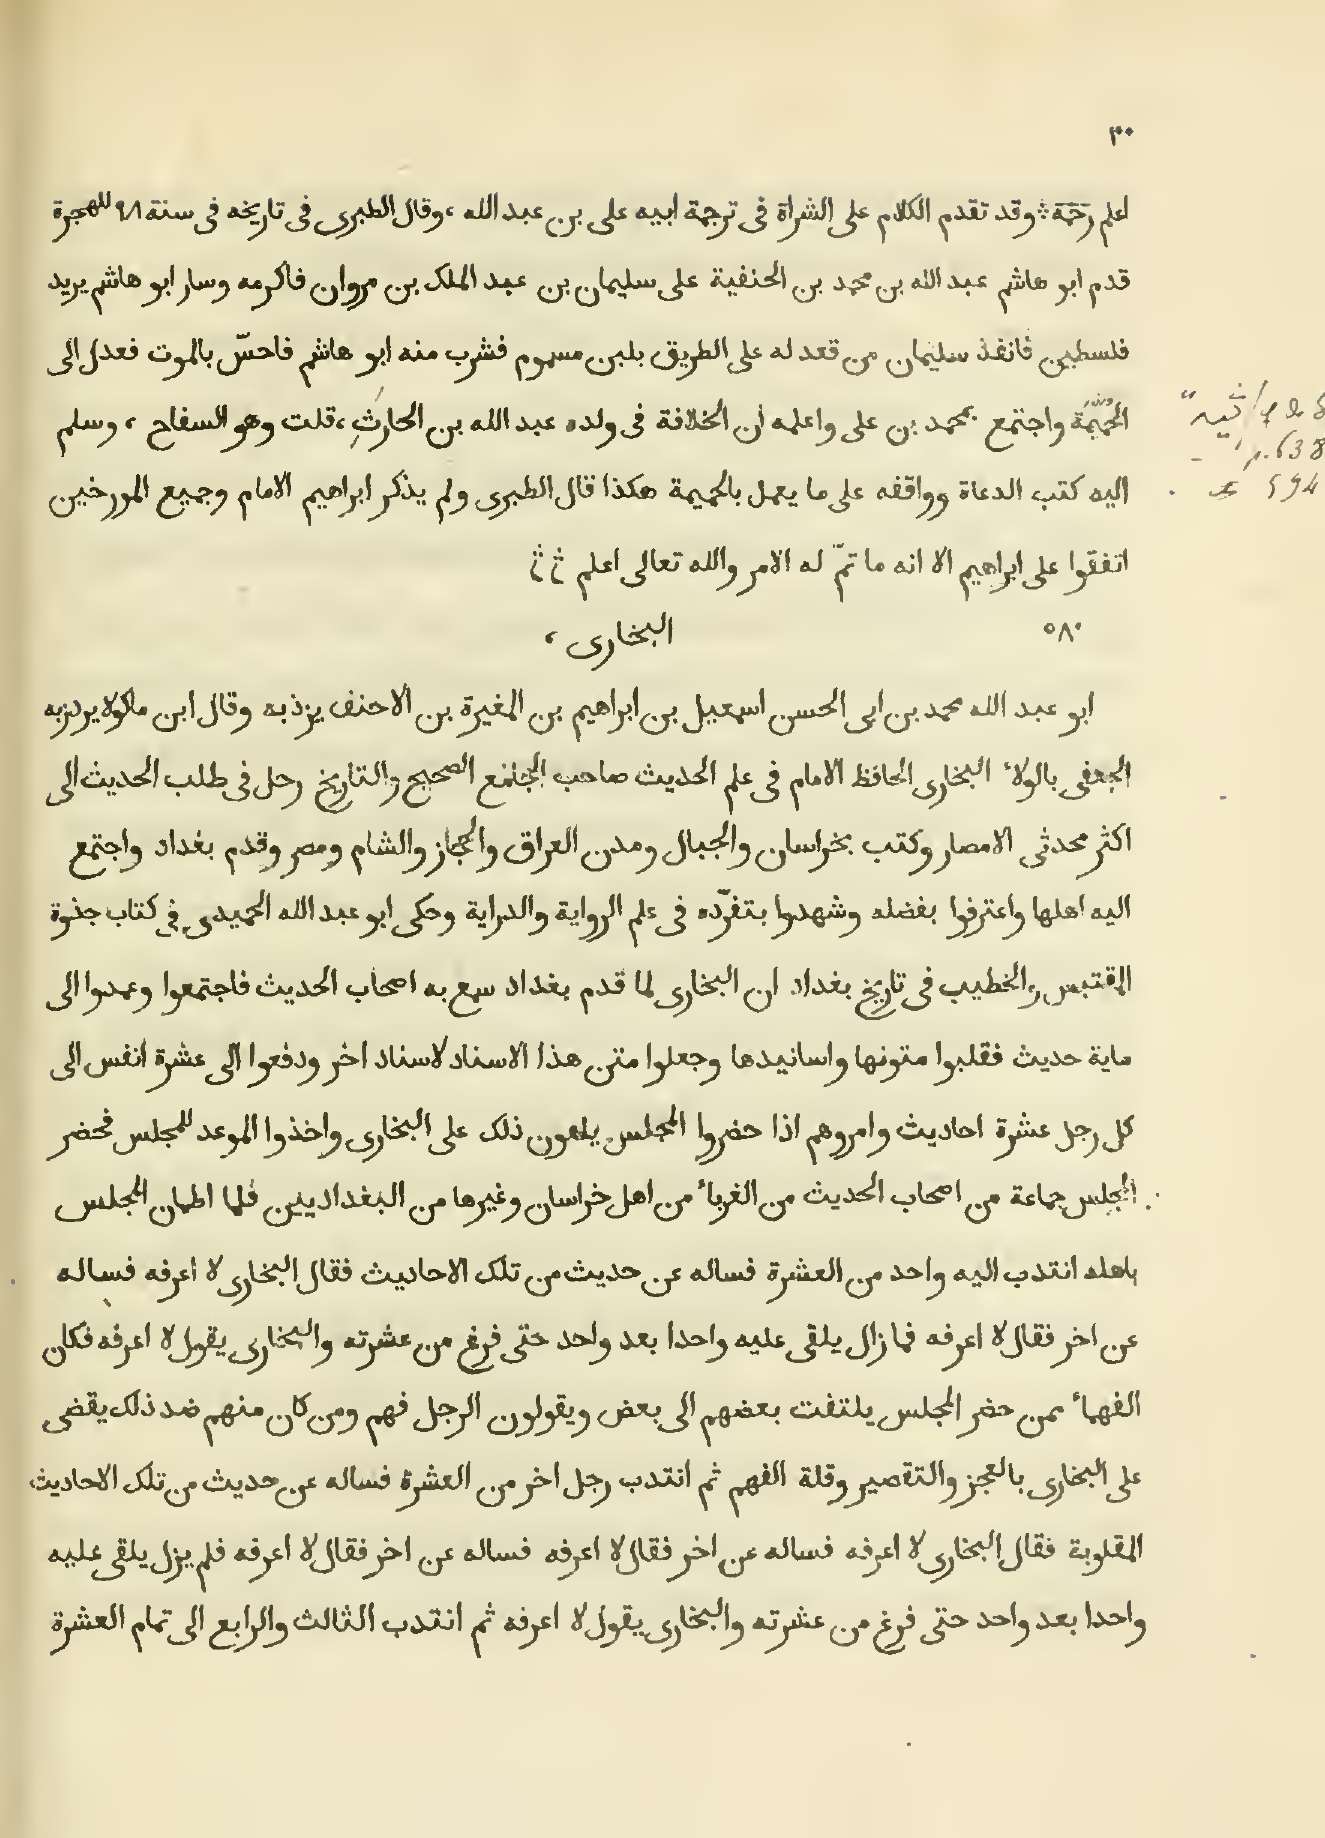 ٣٠
اعلم رحمة ؞ وقد تقدم الكلام على الشراة فى ترجمة ابيه على بن عبد الله ، وقال الطبرى فى تاريخه فى سنة ٩٨ للهجرة
قدم ابو هاشم عبد الله بن محمد بن الحنفية على سليمان بن عبد الملك بن مروان فاكرمه وسار ابو هاشم يريد
فلسطين فانفذ سليمان من قعد له على الطريق بلبن مسموم فشرب منه ابو هاشم فاحسّ بالموت فعدل الى
الحميمة واجتمع بمحمد بن على واعلمه ان الخلافة فى ولده عبد الله بن الحارثِ ، قلت وهو السفاح ، وسلم
اليه كتب الدعاة وواقفه على ما يعمل بالحميمة هكذا قال الطبرى ولم يذكر ابراهيم الامام وجميع المورخين
اتفقوا على ابراهيم الا انه ما تمّ له الامر والله تعالى اعلم
٥٨٠
البخارى ،
ابو عبد الله محمد بن ابى الحسن اسمعيل بن ابراهيم بن المغيرة بن الاحنف يزذبه وقال ابن ماكولا يزدزبه
الجعفى بالولاء البخارى الحافظ الامام فى علم الحديث صاحب الجامع الصحيح والتاريخ رحل فى طلب الحديث الى
اكثر محدثى الامصار وكتب بخراسان والجبال ومدن العراق والحجاز والشام ومصر وقدم بغداد واجتمع
اليه اهلها واعترفوا بفضله وشهدوا بتفرّده فى علم الرواية والدراية وحكى ابو عبد الله الحميدى فى كتاب جذوة
المقتبس والخطيب فى تاريخ بغداد ان البخارى لما قدم بغداد سمع به اصحاب الحديث فاجتمعوا وعمدوا الى
ماية حديث فقلبوا متونها واسانيدها وجعلوا متن هذا الاسناد لاسناد اخر ودفعوا الى عشرة انفس الى
كل رجل عشرة احاديث وامروهم اذا حضروا المجلس يلقون ذلك على البخارى واخذوا الموعد للمجلس فحضر
المجلس جماعة من اصحاب الحديث من الغرباء من اهل خراسان وغيرها من البغداديين فلما اطمان المجلس
باهله انتدب اليه واحد من العشرة فساله عن حديث من تلك الاحاديث فقال البخارى لا اعرفه فساله
عن اخر فقال لا اعرفه فما زال يلقى عليه واحدا بعد واحد حتى فرغ من عشرته والبخارى يقول لا اعرفه فكان
الفهماء ممن حضر المجلس يلتفت بعضهم الى بعض ويقولون الرجل فهم ومن كان منهم ضد ذلك يقضى
على البخارى بالعجز والتقصير وقلة الفهم ثم انتدب رجل اخر من العشرة فساله عن حديث من تلك الاحاديث
المقلوبة فقال البخارى لا اعرفه فساله عن اخر فقال لا اعرفه فساله عن اخر فقال لا اعرفه فلم يزل يلقى عليه
واحدا بعد واحد حتى فرغ من عشرته والبخارى يقول لا اعرفه ثم انتدب الثالث والرابع الى تمام العشرة
p. 638
594